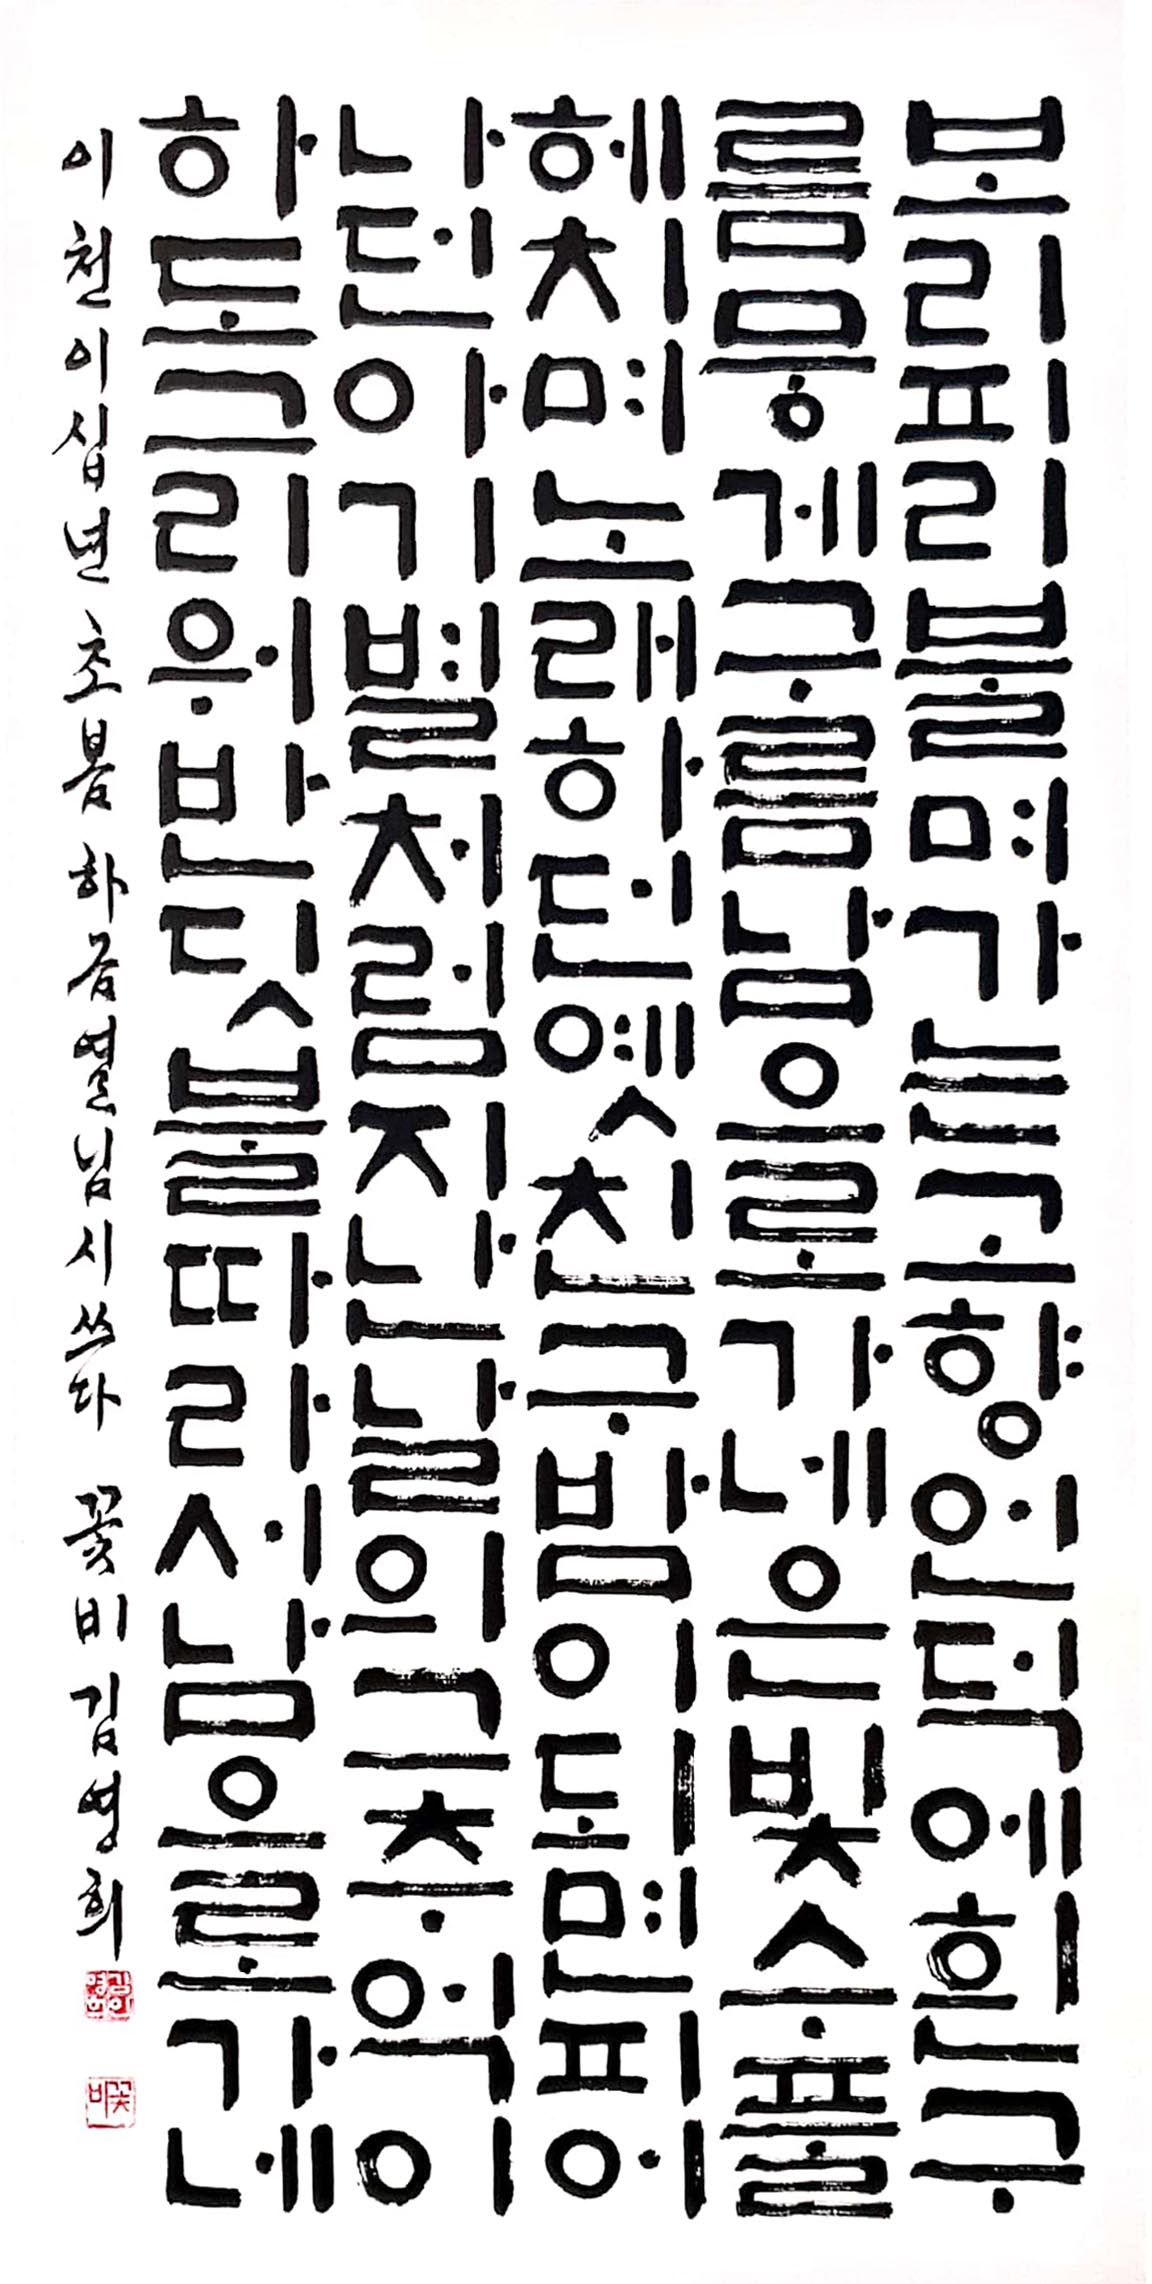 보리피리불며가는고향언덕에흰구
름뭉게구름남으로가네은빛수풀
헤치며노래하던옛친구밤이되면피어
나던아기별처럼지난날의그추억이
하도그리워반딧불따라서남으로가네
이천이십년 초봄 하금열님 시 쓰다 꽃비 김영희
꽃비